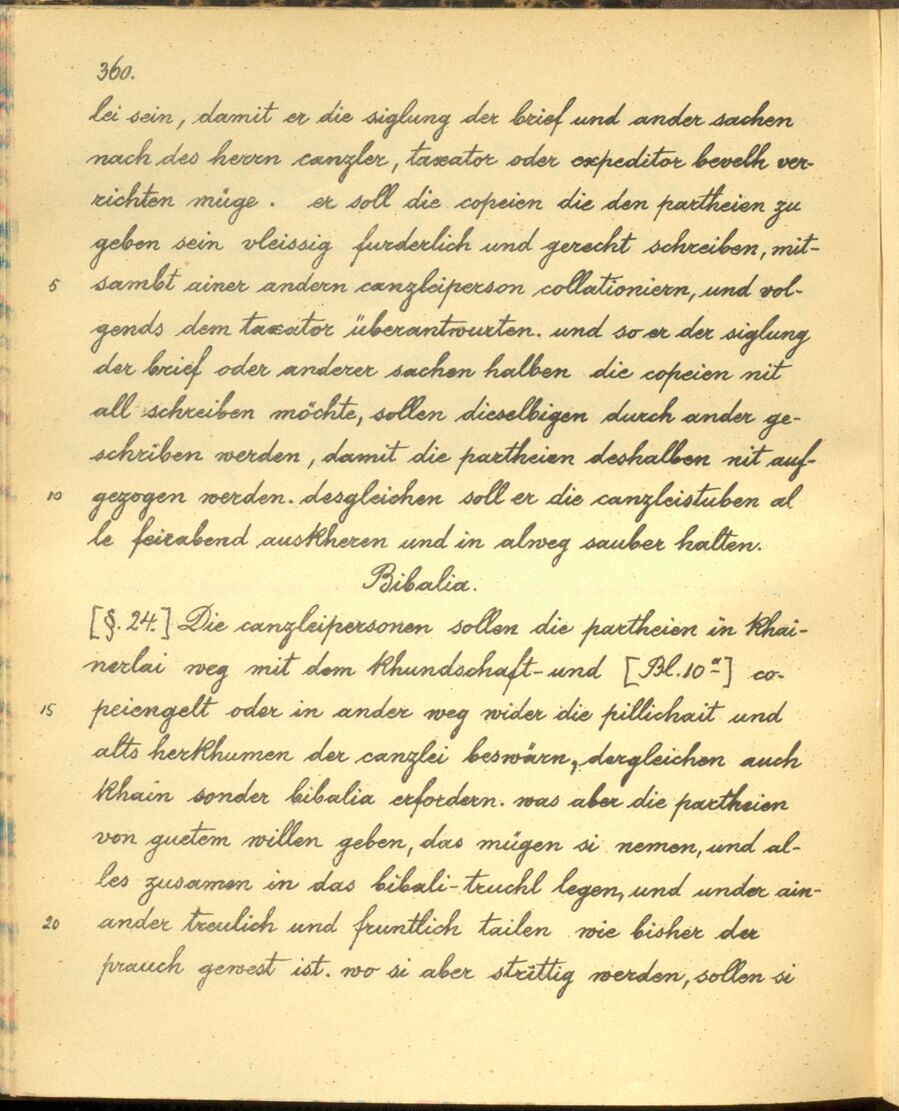 360.
lei sein, damit er die siglung der brief und ander sachen
nach des herrn canzler, taxator oder expeditor bevelh ver-
richten müge. er soll die copeien die den partheien zu
geben sein vleissig furderlich und gerecht schreiben, mit-
5 sambt ainer andern canzleiperson collationiern, und vol-
gends dem taxator überantwurten. und so er der siglung
der brief oder anderer sachen halben die copeien nit
all schreiben möchte, sollen dieselbigen durch ander ge-
schriben werden, damit die partheien deshalben nit auf-
10 gezogen werden. desgleichen soll er die canzleistuben al
le feirabend auskheren und in alweg sauber halten.
Bibalia.
[§. 24.] Die canzleipersonen sollen die partheien in khai-
nerlai weg mit dem khundschaft- und [Bl. 10ª] co-
15 peiengelt oder in ander weg wider die pillichait und
alts herkhumen der canzlei beswärn, dergleichen auch
khain sonder bibalia erfordern. was aber die partheien
von guetem willen geben, das mügen si nemen, und al-
les zusamen in das bibali-truchl legen, und under ain-
20 ander treulich und fruntlich tailen wie bisher der
prauch gewest ist. wo si aber strittig werden, sollen si